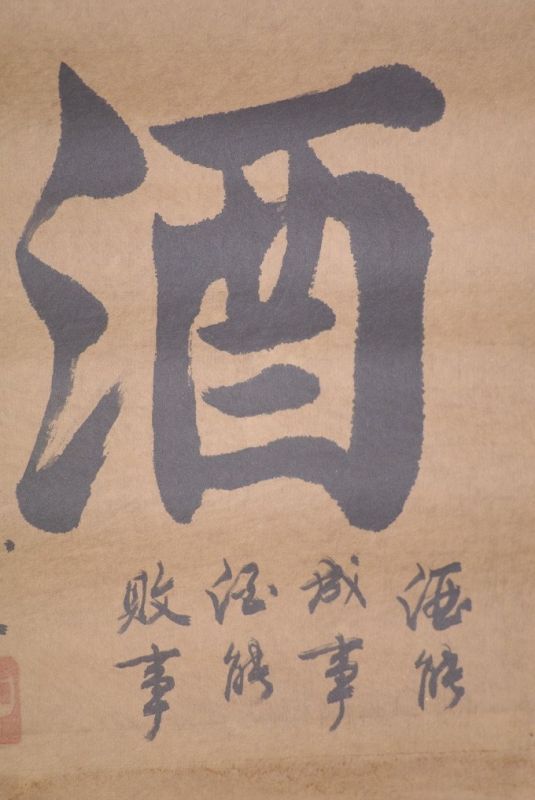 酒
酒能
成事
酒能
败事